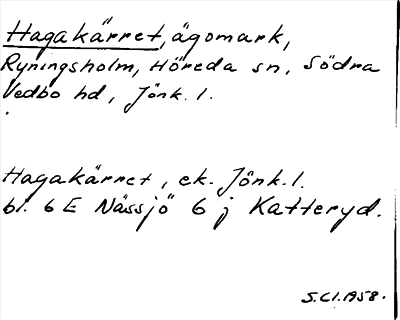 Hagakärret, ägomark,
Ryningsholm, Höreda sn, Södra
Vedbo hd, Jönk. l.
Hagakärret, ek. Jönk. l.
bl. 6 E Nässjö 6 j Katteryd.
S.Cl. 1958.